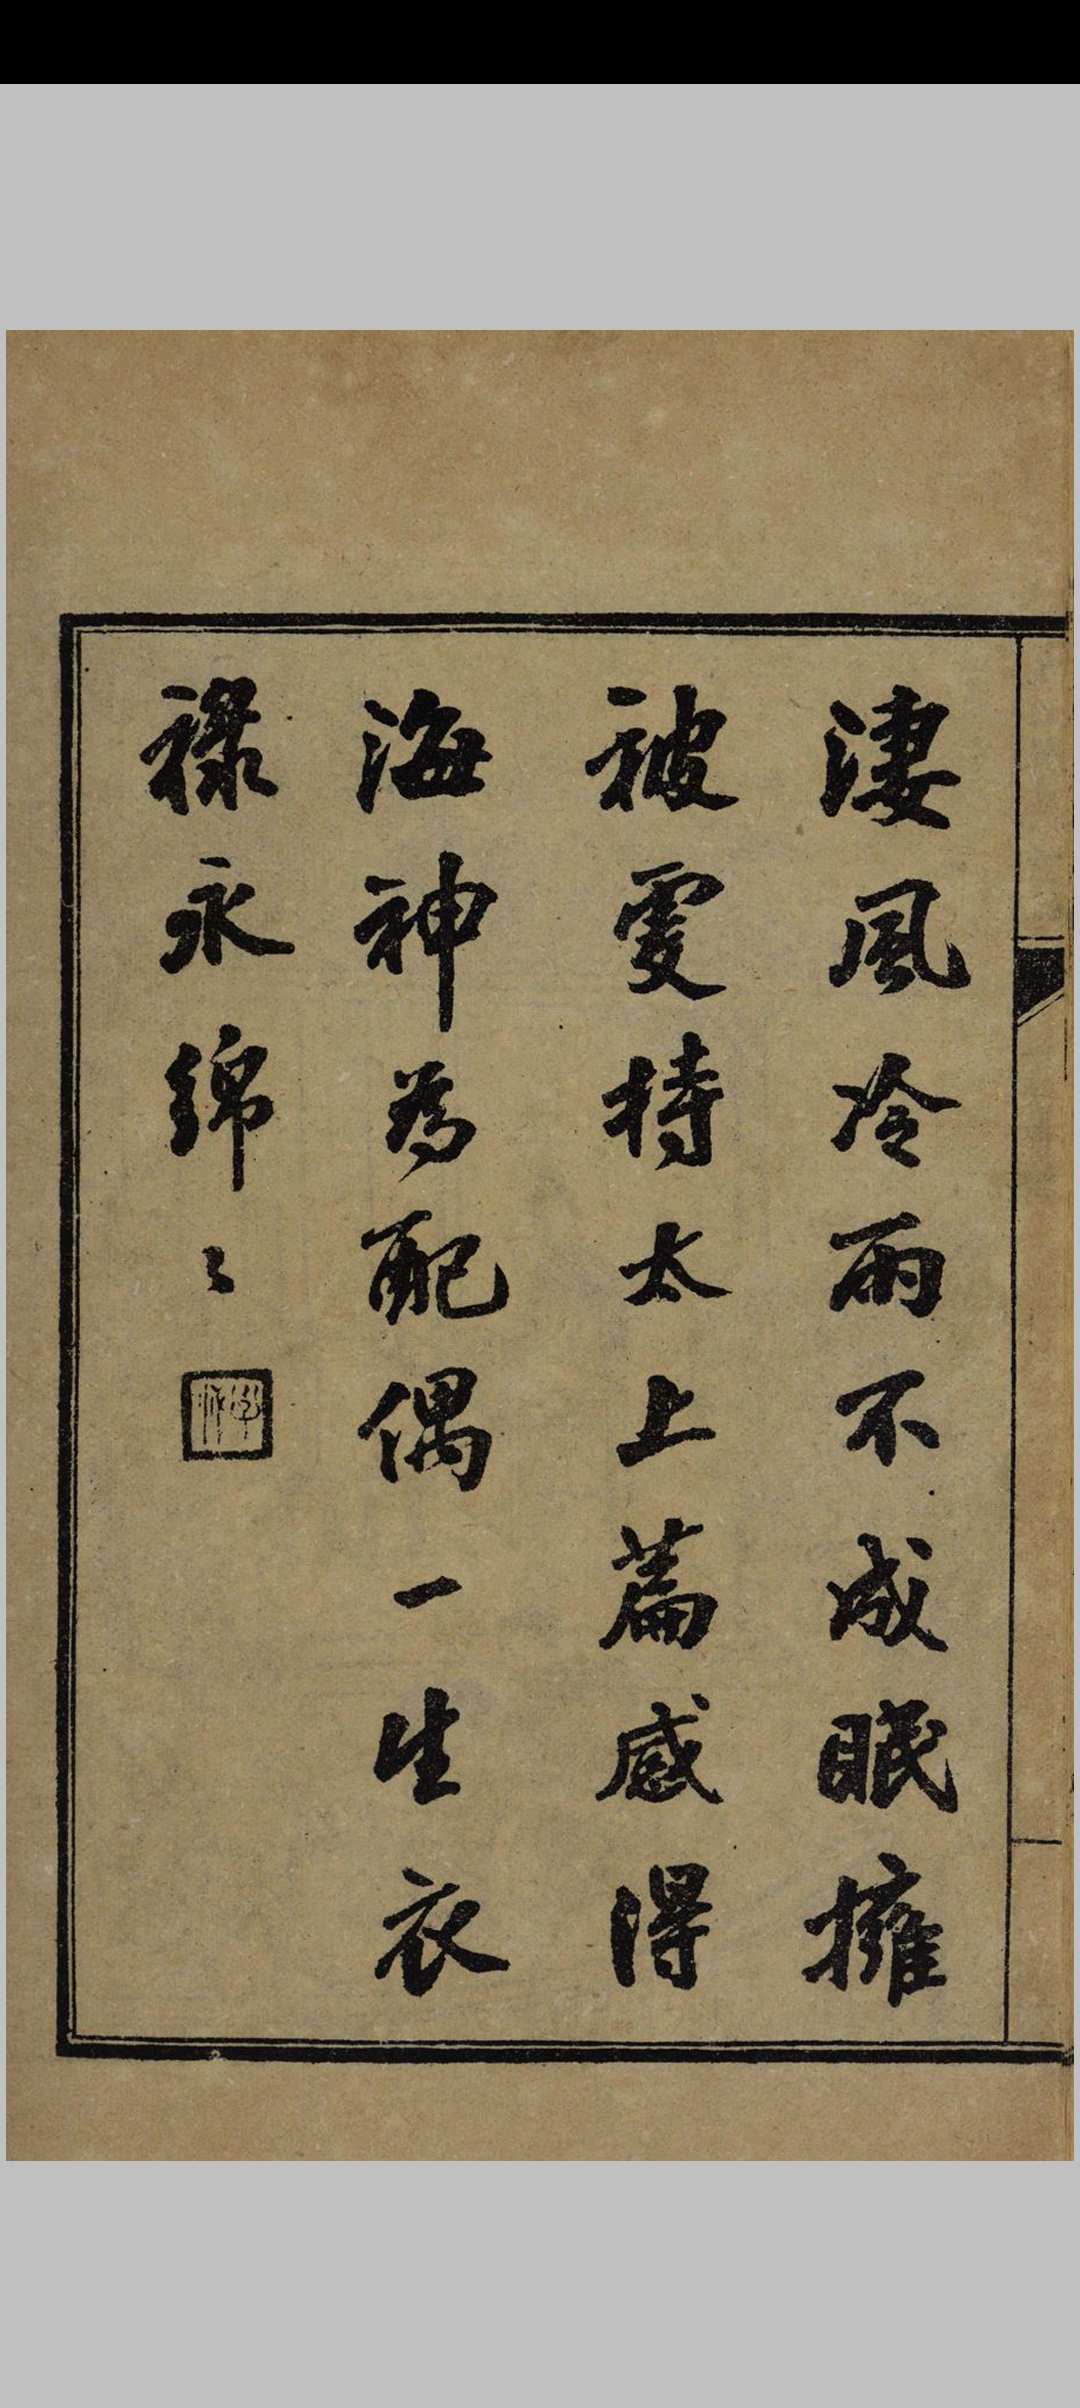 淒風冷雨不成眠擁
被雯持太上篇感得
海神為配偶一生衣
祿永綿〻